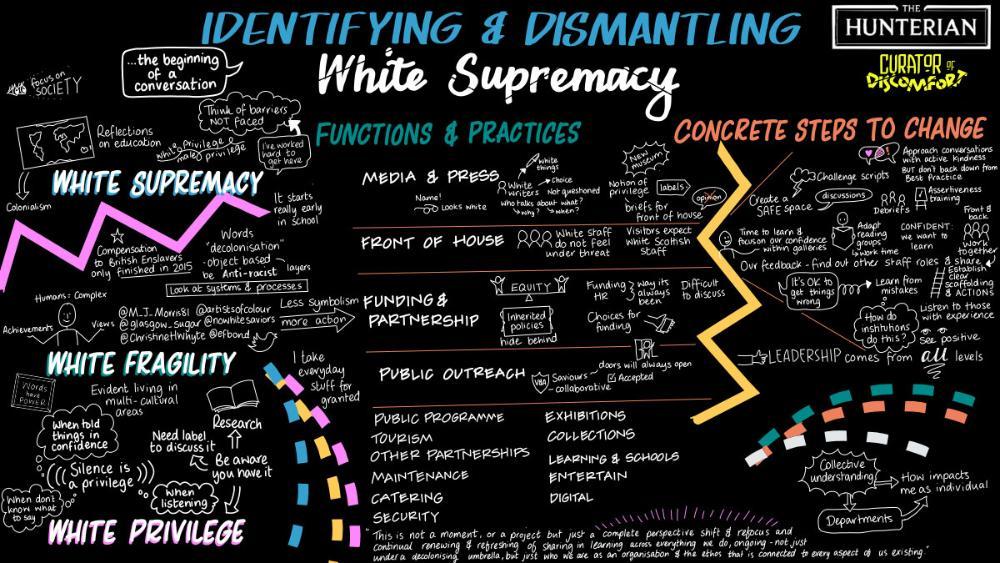 IDENTIFYING & DISMANTLING
White Supremacy
THE
HUNTERIAN
CURATOR OF
DISCOMFORT
focus on
SOCIETY
...the beginning
of a
conversation
Think of barriers
NOT faced
Reflections
on education
White privilege &
male privilege
I've worked
hard to
get here
WHITE SUPREMACY
Colonialism
It starts
really early
in school
Compensation
to British Enslavers
only finished in 2015
Words
"decolonisation"
-object based layers
be Anti-racist
Look at systems & processes
Humans = Complex
Achievements
Views
@M.J_Morris81 @artisksofcolour
@glasgow_sugar @nowhitesaviors
@ChristinetWhyte @efbond
Less symbolism
more action
WHITE FRAGILITY
Words
have
POWER
Evident living in
multi-cultural
areas
Research
When told
things in
confidence
Need label
to discuss it
Be aware
you have it
Silence is
a privilege
When don't
know what
to say
When
listening
WHITE PRIVILEGE
I take
everyday
stuff for
granted
FUNCTIONS & PRACTICES
MEDIA & PRESS
Name!
Looks white
White
writers
white
things!
Choice
Not questioned
who talks about what?
why? when?
New
museum
Notion of
privilege
labels
opinion
briefs for
front of house
FRONT OF HOUSE
White staff
do not feel
under threat
Visitors expect
white Scottish
staff
FUNDING &
PARTNERSHIP
EQUITY
Inherited
policies
hide behind
Funding
HR
way it's
always
been
Difficult
to discuss
Choices for
funding
PUBLIC OUTREACH
Saviours
collaborative
doors will always open
Accepted
PUBLIC PROGRAMME
TOURISM
OTHER PARTNERSHIPS
MAINTENANCE
CATERING
SECURITY
EXHIBITIONS
COLLECTIONS
LEARNING & SCHOOLS
ENTERTAIN
DIGITAL
"This is not a moment, or a project but just a complete perspective shift & refocus and
continual renewing & refreshing of sharing in learning across everything we do, ongoing - not just
under a decolonising umbrella, but just who we are as an organisation & the ethos that is connected to every aspect of us existing."
CONCRETE STEPS TO CHANGE
Approach conversations
with active kindness
But don't back down from
Best Practice
Challenge scripts
Create a
SAFE space
discussions
Debriefs
Assertiveness
training
Time to learn &
focus on our confidence
within galleries
Adapt
reading
groups
work time
CONFIDENT:
we want to
learn
Front &
back
work
together
Our feedback - find out other staff roles & share
It's OK to
get things
wrong
Learn from
mistakes
Establish
clear
scaffolding
& ACTIONS
How do
institutions
do this?
Listen to those
with experience
See positive
LEADERSHIP comes from all levels
Collective
understanding
How impacts
me as individual
Departments